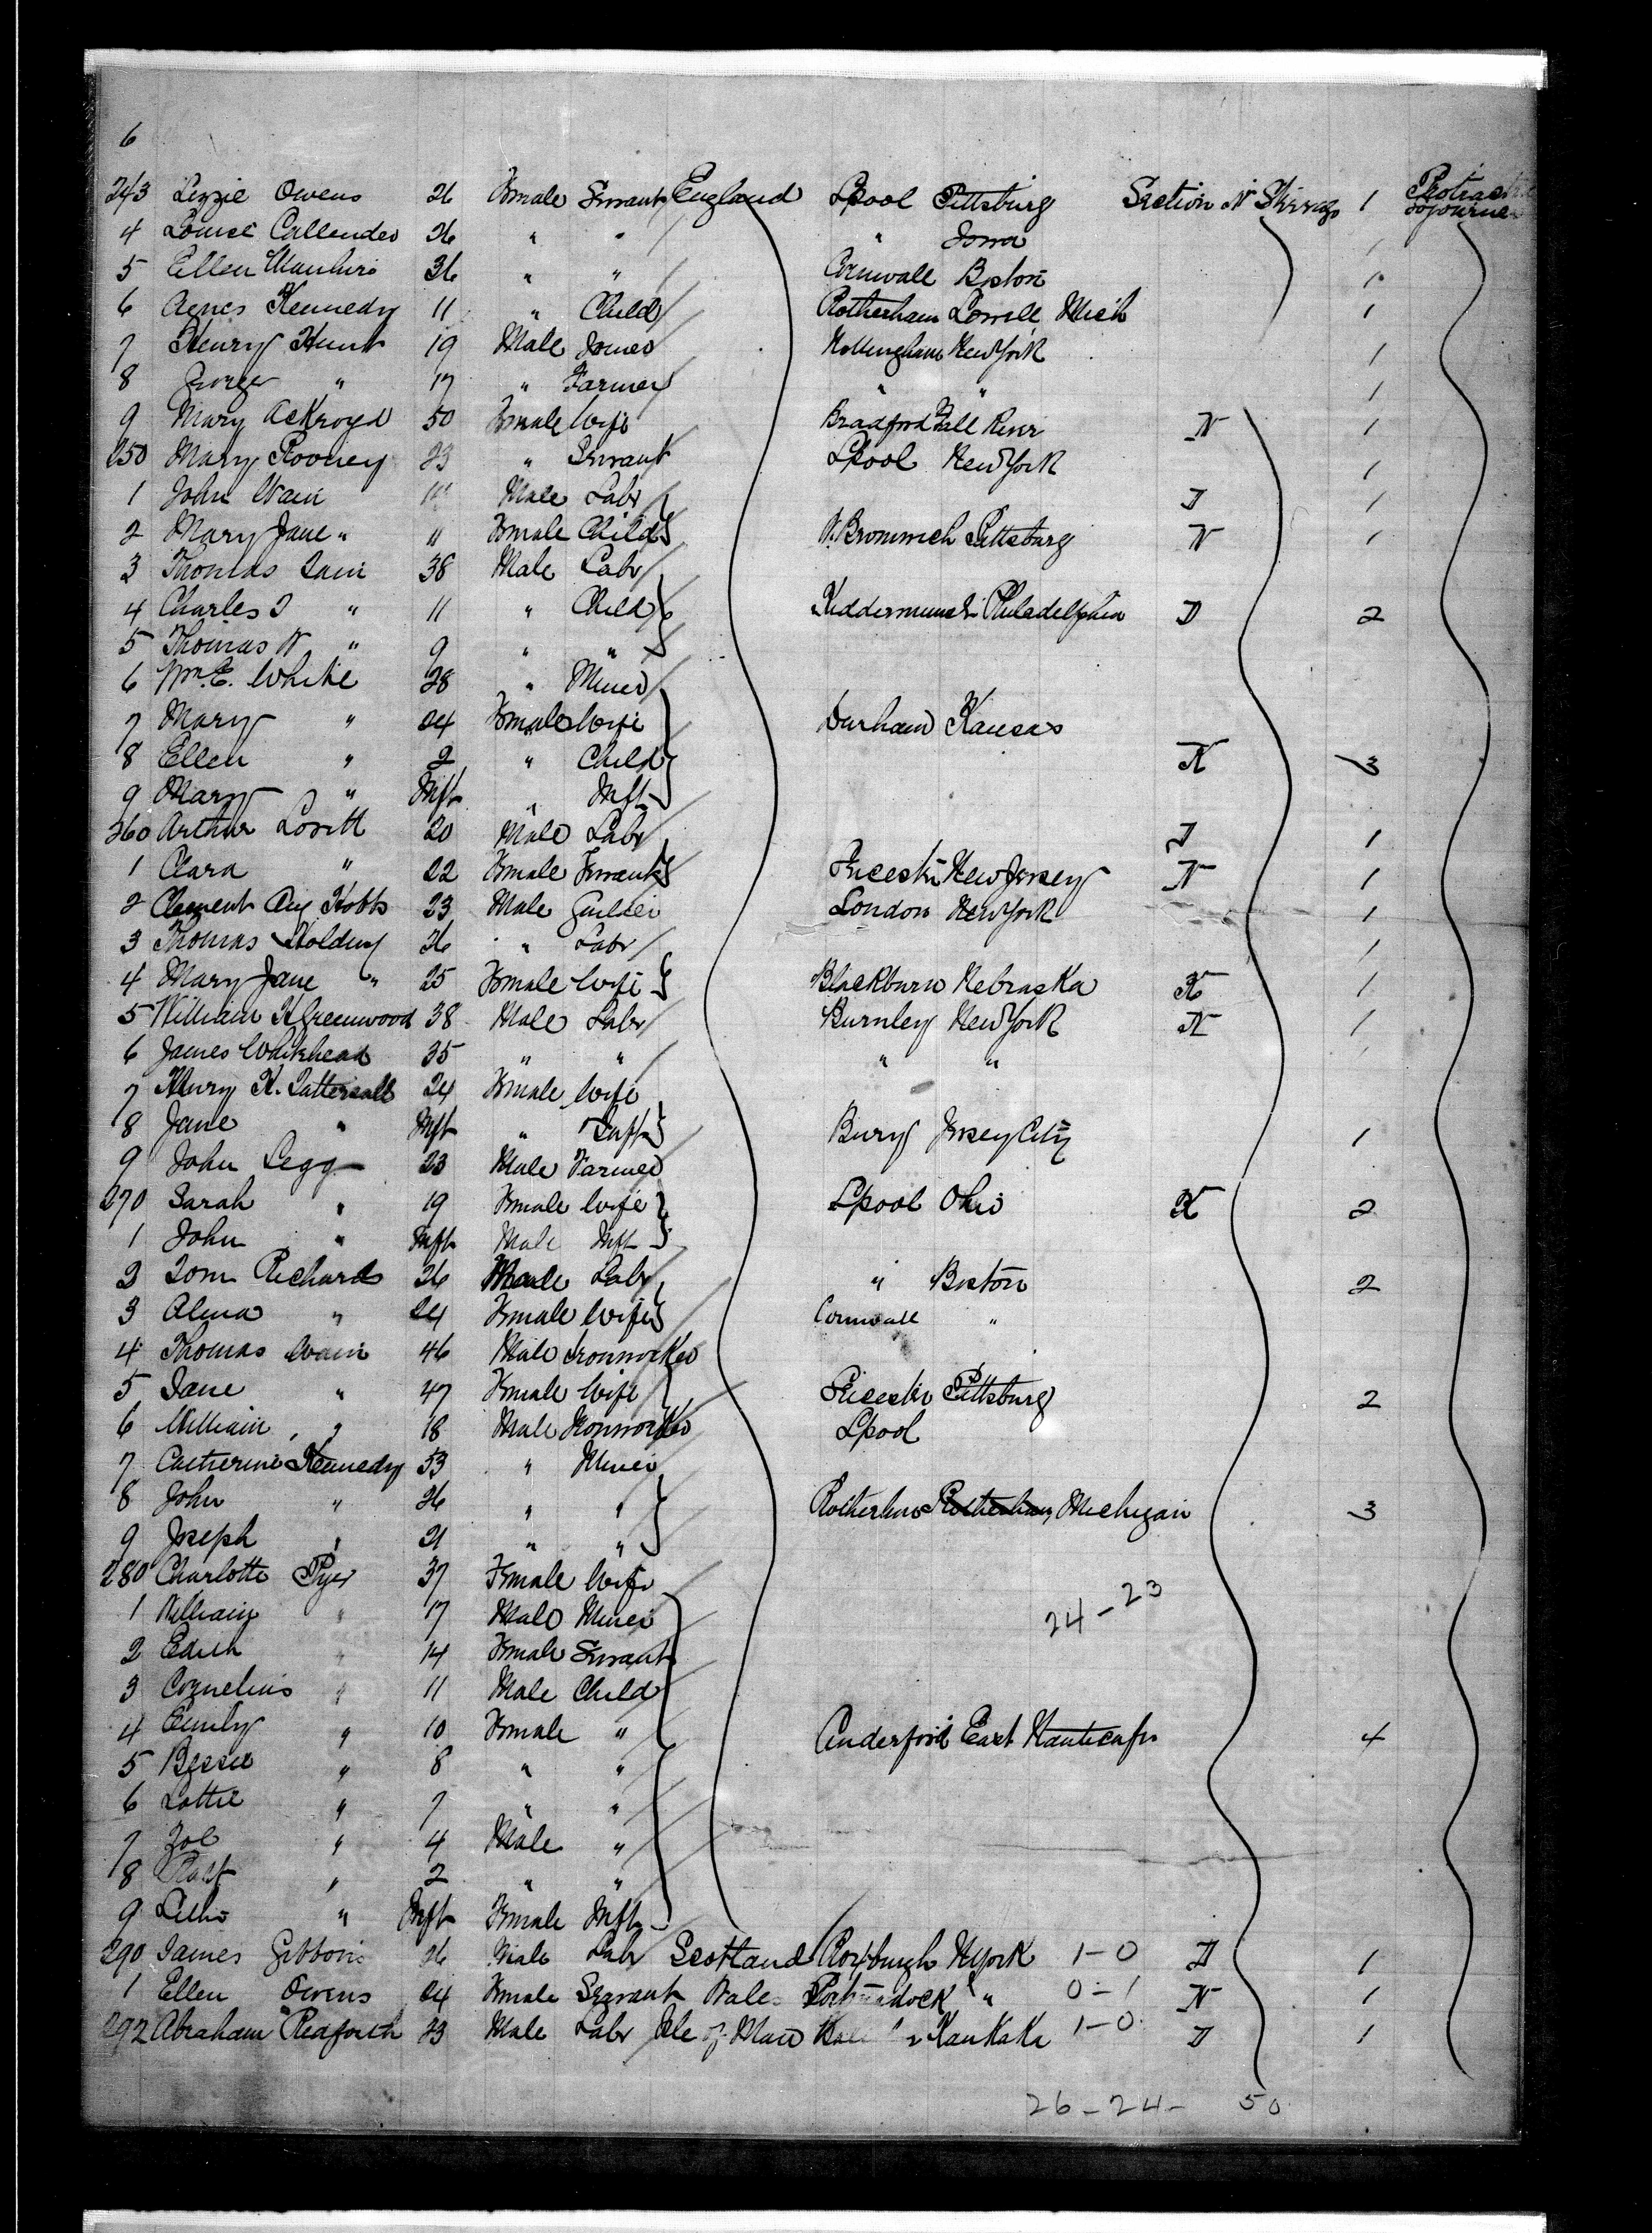 6
243 Lizzie Owens 26 Female Servant England Lpool Pittsburg Section N Steerage 1 Protracted sojourn
4 Louise Callender 26 " " " Iowa 1
5 Ellen 36 " " Cornwall Boston 1
6 Agnes Kennedy 11 " Child Rotherham Lowell Mich 1
7 Henry Hunt 19 Male Joiner Nottingham New York 1
8 George " 17 " Farmer " " 1
9 Mary Ackroyd 50 Female Wife Bradford Fall River N 1
250 Mary Rooney 23 " Servant Lpool New York 1
1 John Wain Male Labr D 1
2 Mary Jane " 11 Female Child W. Bromwich Pittsburg N 1
3 Thomas 38 Male Labr
4 Charles J " 11 " Child Kidderminster Philadelphia D 2
5 Thomas W " 9 " "
6 Wm. E. White 28 " Miner
7 Mary " 24 Female Wife Durham Kansas
8 Ellen " 2 " Child N 3
9 Mary " Inft " Inft
260 Arthur Lovitt 20 Male Labr D 1
1 Clara " 22 Female Servant Leicester New Jersey N 1
2 Clement Aug Hobbs 23 Male London New York 1
3 Thomas Holding 26 " Labr 1
4 Mary Jane " 25 Female Wife Blackburn Nebraska N 1
5 William H Greenwood 38 Male Labr Burnley New York N 1
6 James Whitehead 35 " " " "
7 Mary H. Tattersall 24 Female Wife
8 Jane " Inft " Inft Bury Jersey City 1
9 John Legg 23 Male Farmer
270 Sarah " 19 Female Wife Lpool Ohio N 2
1 John " Inft Male Inft
2 Tom Richards 26 Male Labr " Boston 2
3 Alma " 24 Female Wife Cornwall "
4 Thomas Wain 46 Male Ironworker
5 Jane " 47 Female Wife Leicester Pittsburg 2
6 William " 18 Male Ironworker Lpool
7 Catherine Kennedy 53 " Miner
8 John " 26 " " Rotherham Rotherham Michigan 3
9 Joseph " 21 " "
280 Charlotte Pyer 37 Female Wife
1 William " 17 Male Miner 24-23
2 Edith " 14 Female Servant
3 Cornelius " 11 Male Child
4 Emily " 10 Female " Cinderford East 4
5 Bessie " 8 " "
6 Lottie " 7 " "
7 " 4 Male "
8 " 2 " "
9 " Inft Female Inft
290 James Gibbons 26 Male Labr Scotland Roxburgh N York 1-0 D 1
1 Ellen Owens 24 Female Servant Wales " 0-1 N 1
292 Abraham 23 Male Labr Isle of Man 1-0 D 1
26-24- 50